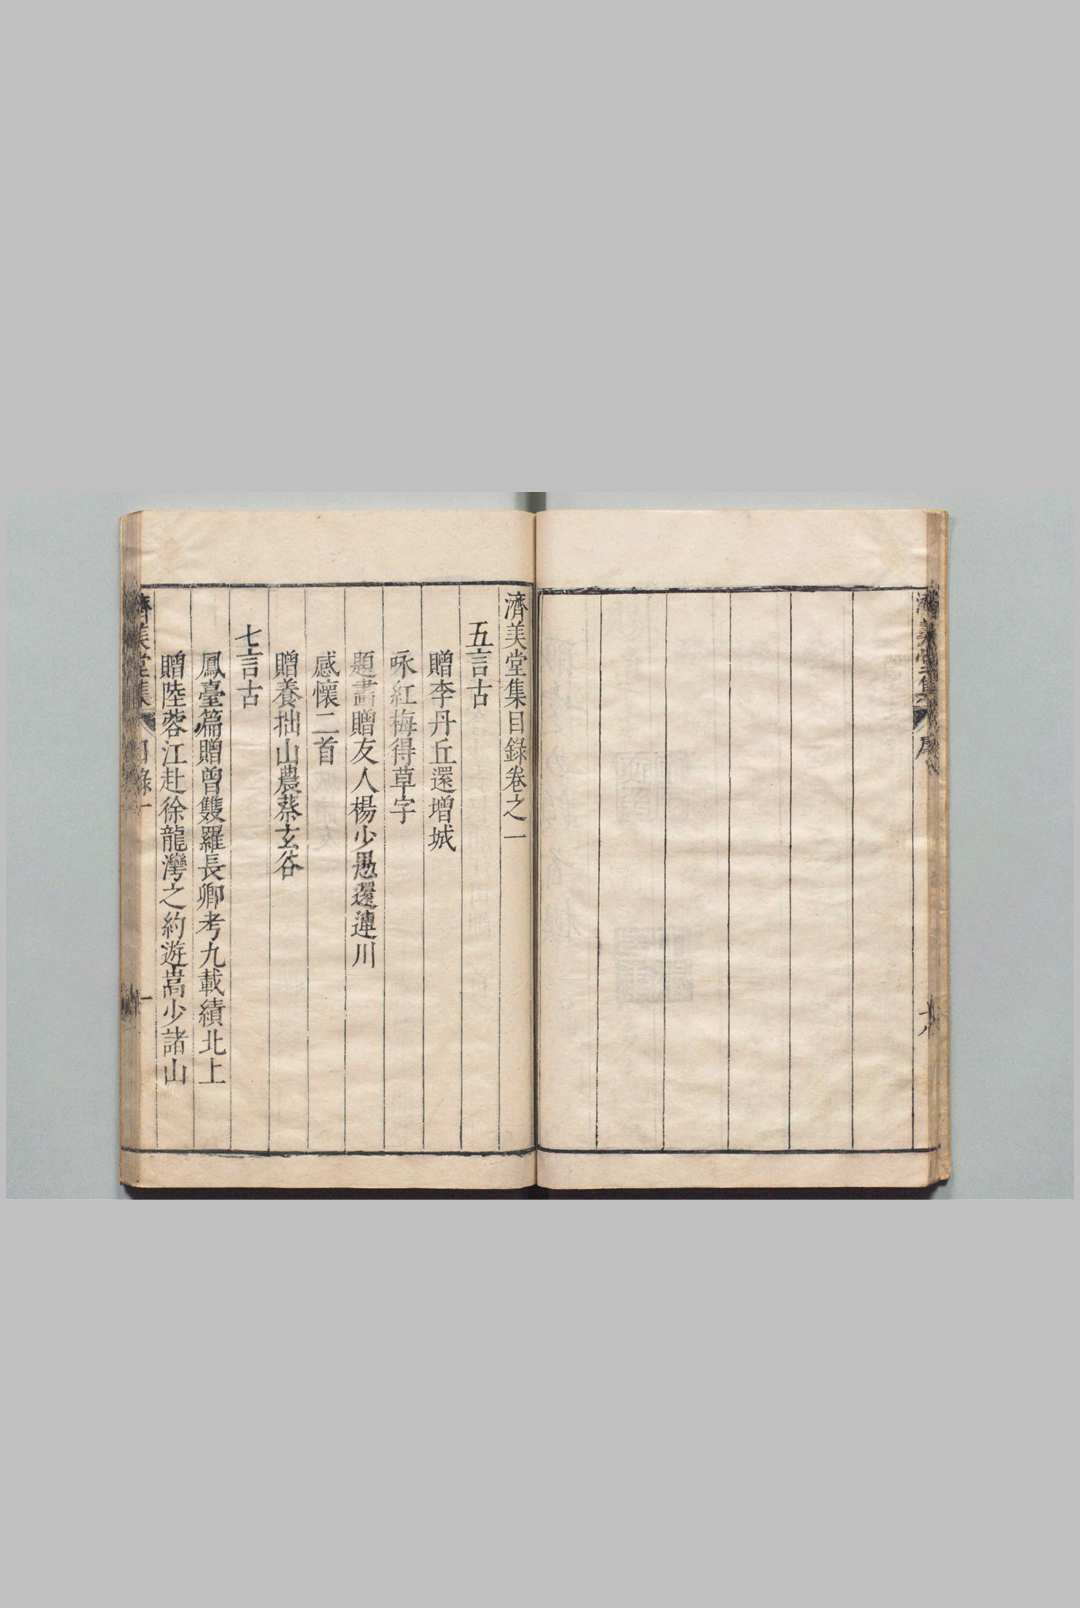 濟美堂集
序
十八
濟美堂集目錄卷之一
五言古
贈李丹丘還增城
咏紅梅得草字
題畵贈友人楊少愚還漣川
感懷二首
贈養拙山農蔡玄谷
七言古
鳳臺篇贈曾雙羅長卿考九載績北上
贈陸蓉江赴徐龍灣之約遊嵩少諸山
濟美堂集
目錄一
一